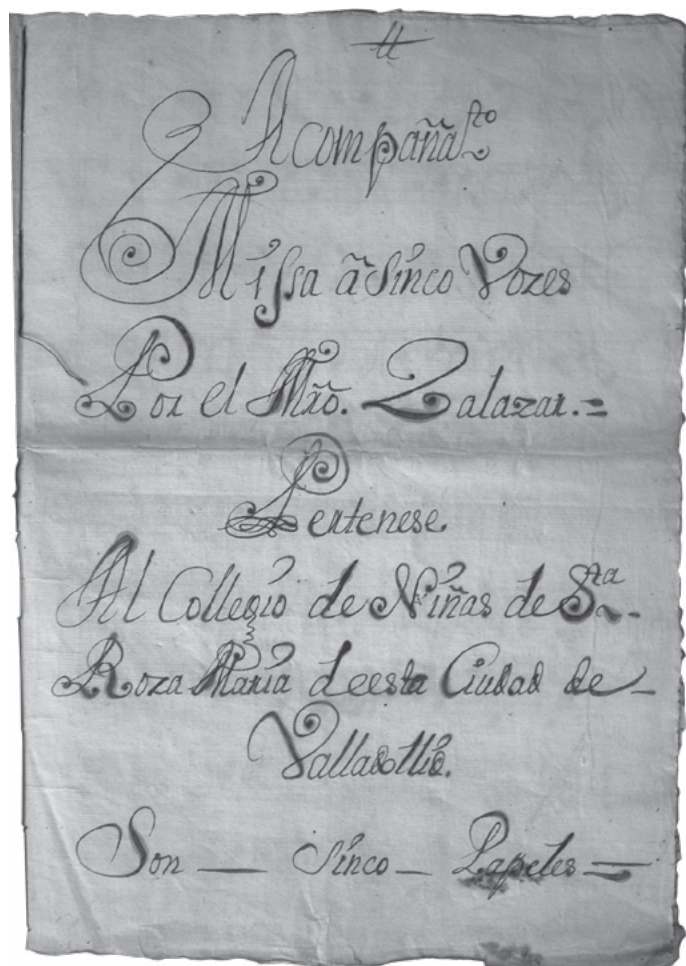 Acompaña.to
Missa â Sinco Vozes
Por el Mro. Zalazar.=
Pertenese
Al Collegio de Niñas de Sta
Roza Maria deesta Ciudad de
Son — sinco — Papeles =